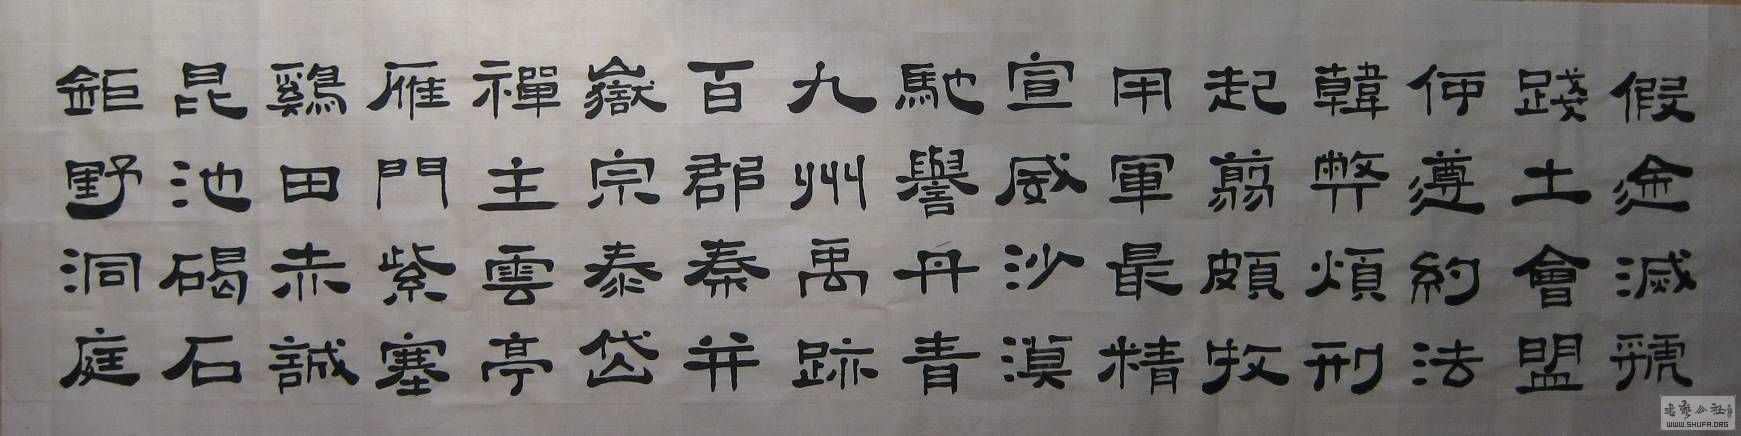 假途滅虢
踐土會盟
何遵約法
韓弊煩刑
起翦頗牧
用軍最精
宣威沙漠
馳譽丹青
九州禹跡
百郡秦并
嶽宗泰岱
禪主雲亭
雁門紫塞
鷄田赤誠
昆池碣石
鉅野洞庭
书藝公社
WWW.SHUFA.ORG